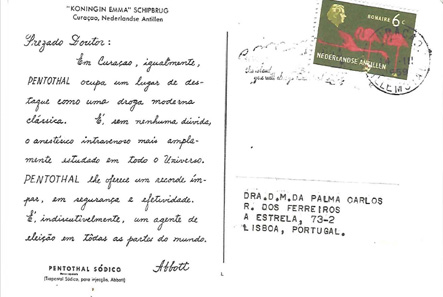 "KONINGIN EMMA" SCHIPBRUG
Curaçao, Nederlandse Antillen
Prezado Doutor:
Em Curaçao, igualmente,
PENTOTHAL ocupa um lugar de des-
taque como uma droga moderna
clássica. É, sem nenhuma dúvida,
o anestésico intravenoso mais ampla-
mente estudado em todo o Universo.
PENTOTHAL lhe oferece um recorde ím-
par, em segurança e efetividade.
É, indiscutivelmente, um agente de
eleição em tôdas as partes do mundo.
Abbott
PENTOTHAL SÓDICO
(Tiopental Sódico, para injeção, Abbott)
BONAIRE 6 C
NEDERLANDSE ANTILLEN
DRA.D.M.DA PALMA CARLOS
R. DOS FERREIROS
A ESTRELA, 73-2
LISBOA, PORTUGAL.